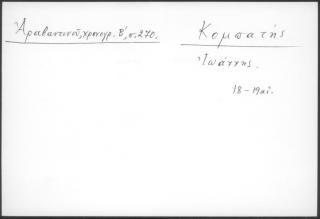 Ἀραβαντινοῦ, χρονογρ. Β', σ. 270.
Κομπατής
Ἰωάννης.
18-19 αἰ.